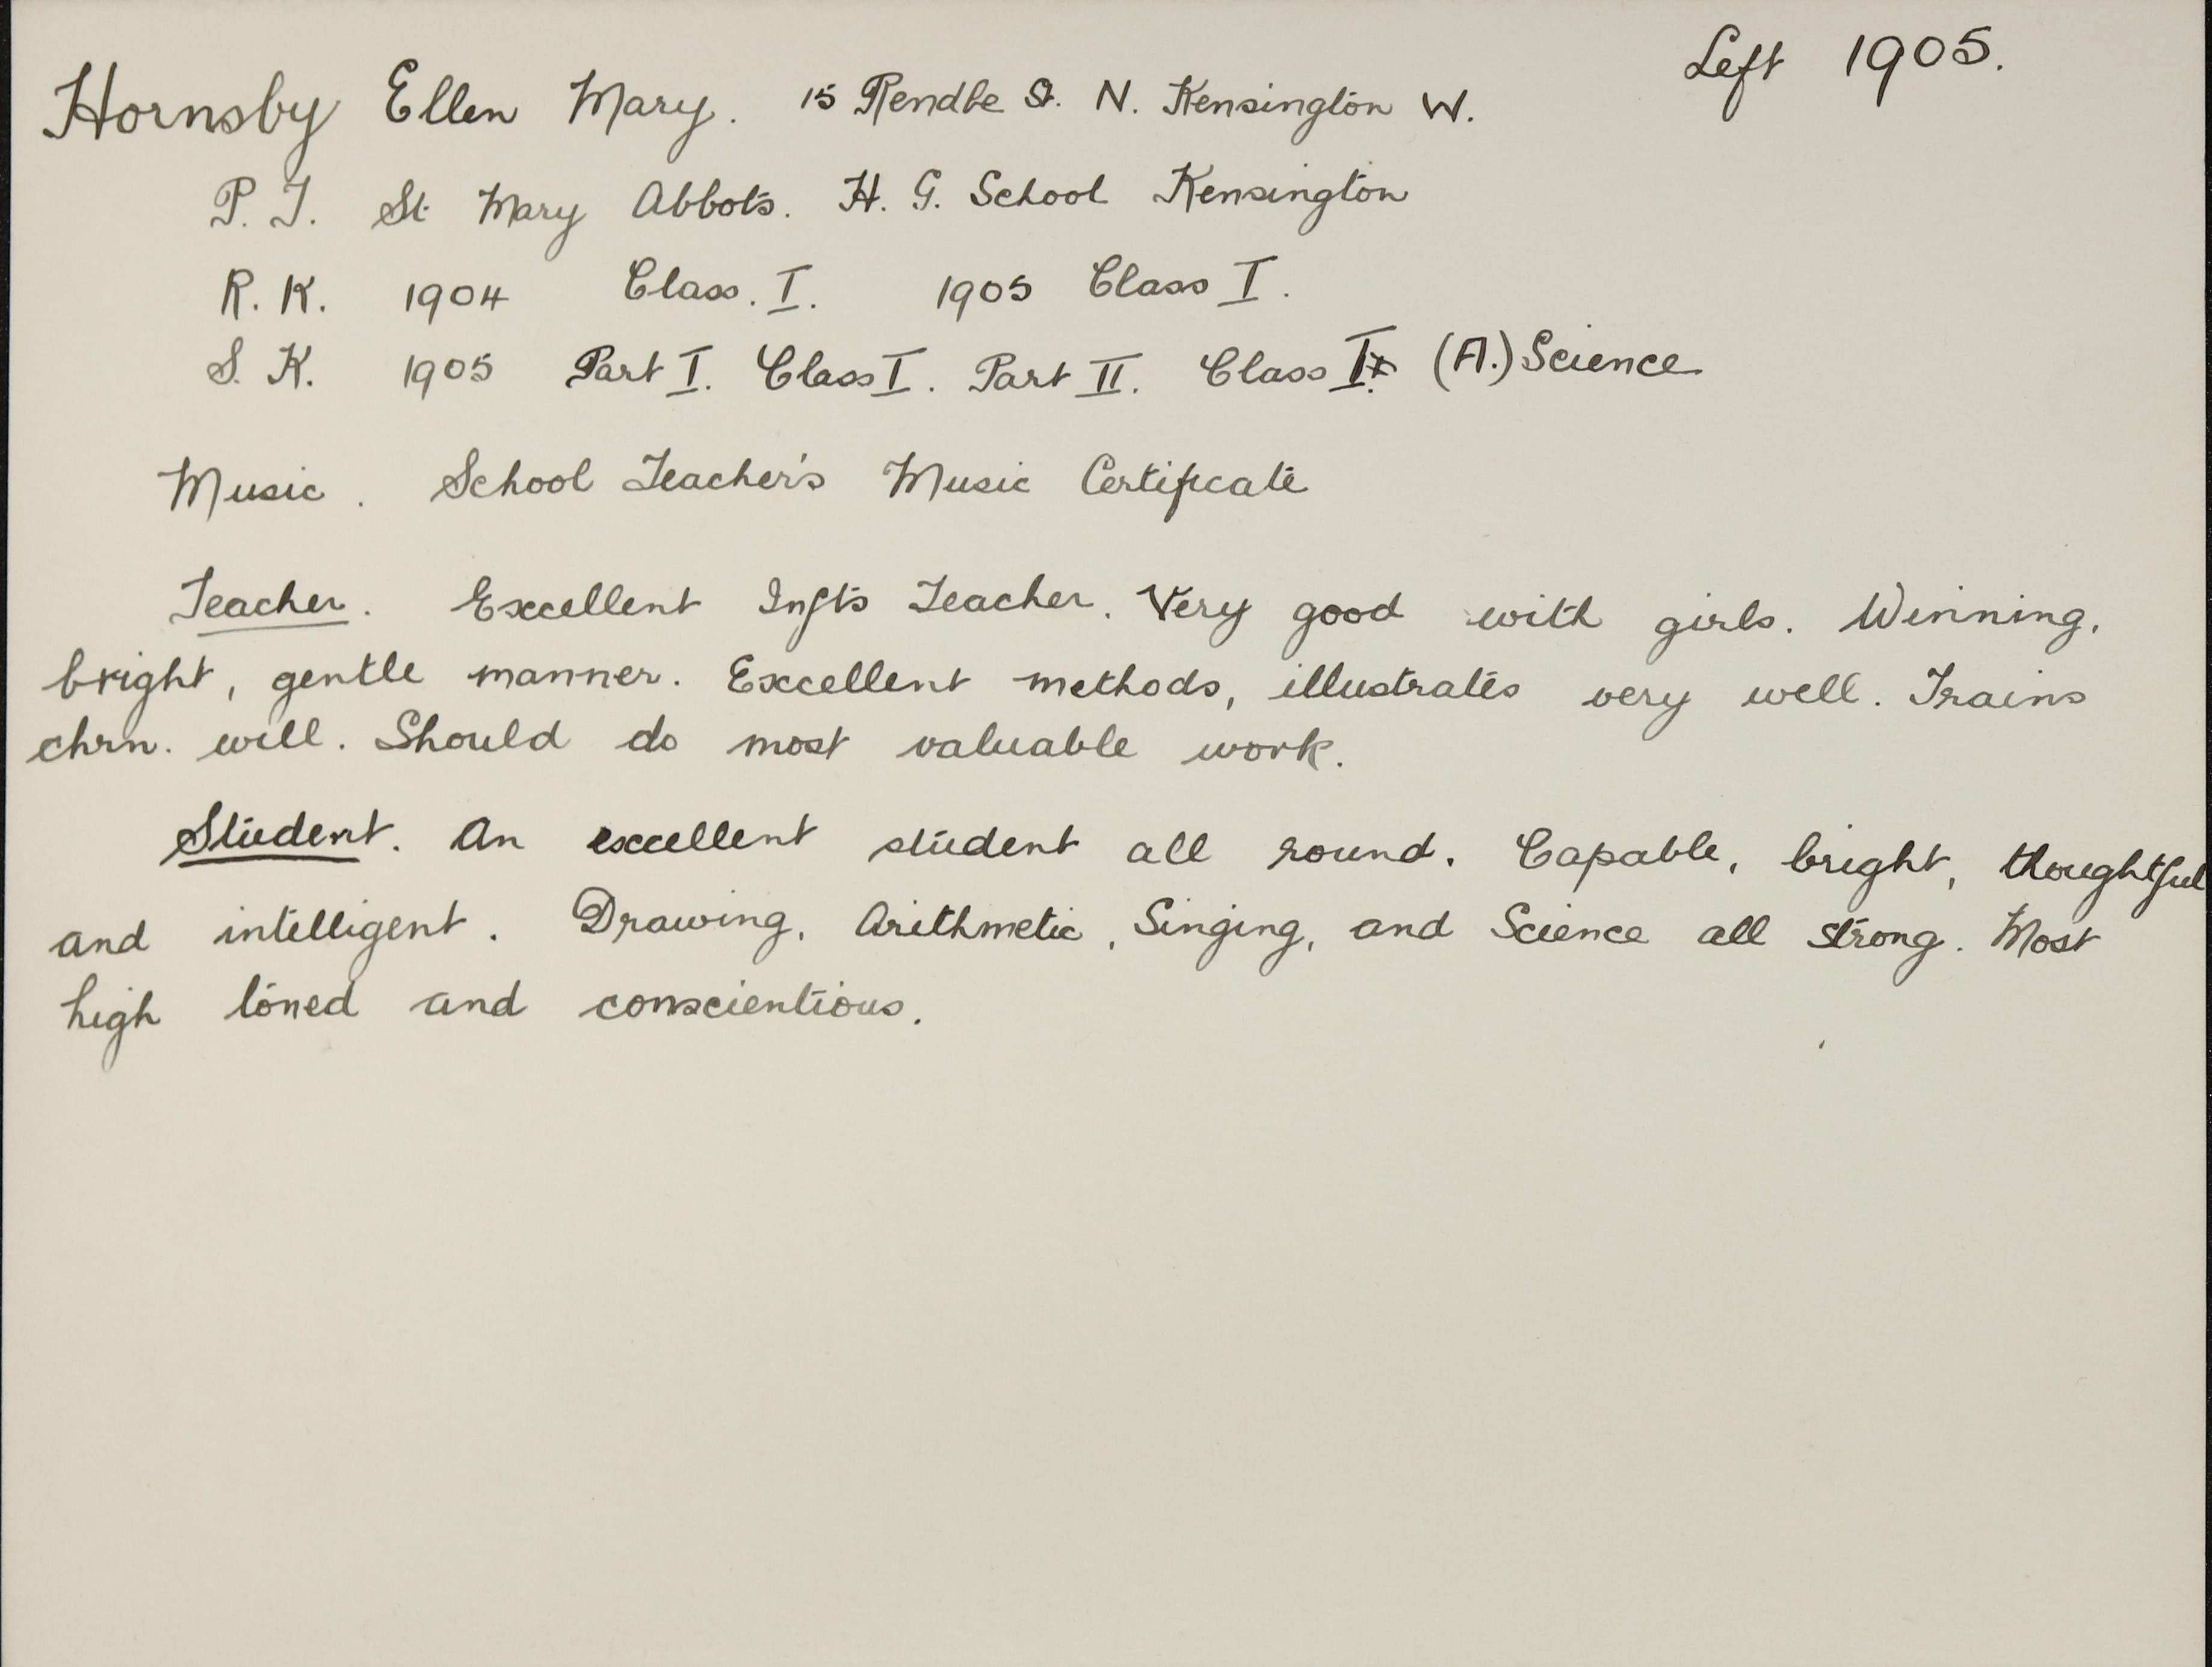 Left 1905.
Hornsby Ellen Mary. 15 Rendle St. N. Kensington W.
P. T. St Mary Abbots. H. G. School Kensington
R. K. 1904 Class. I. 1905 Class I.
S. K. 1905 Part I. Class I. Part II. Class I. (A.) Science
Music. School Teacher's Music Certificate
Teacher. Excellent Infts Teacher. Very good with girls. Winning,
bright, gentle manner. Excellent methods, illustrates very well. Trains
chrn. well. Should do most valuable work.
Student. An excellent student all round. Capable, bright, thoughtful
and intelligent. Drawing, Arithmetic, Singing, and Science all strong. Most
high toned and conscientious.